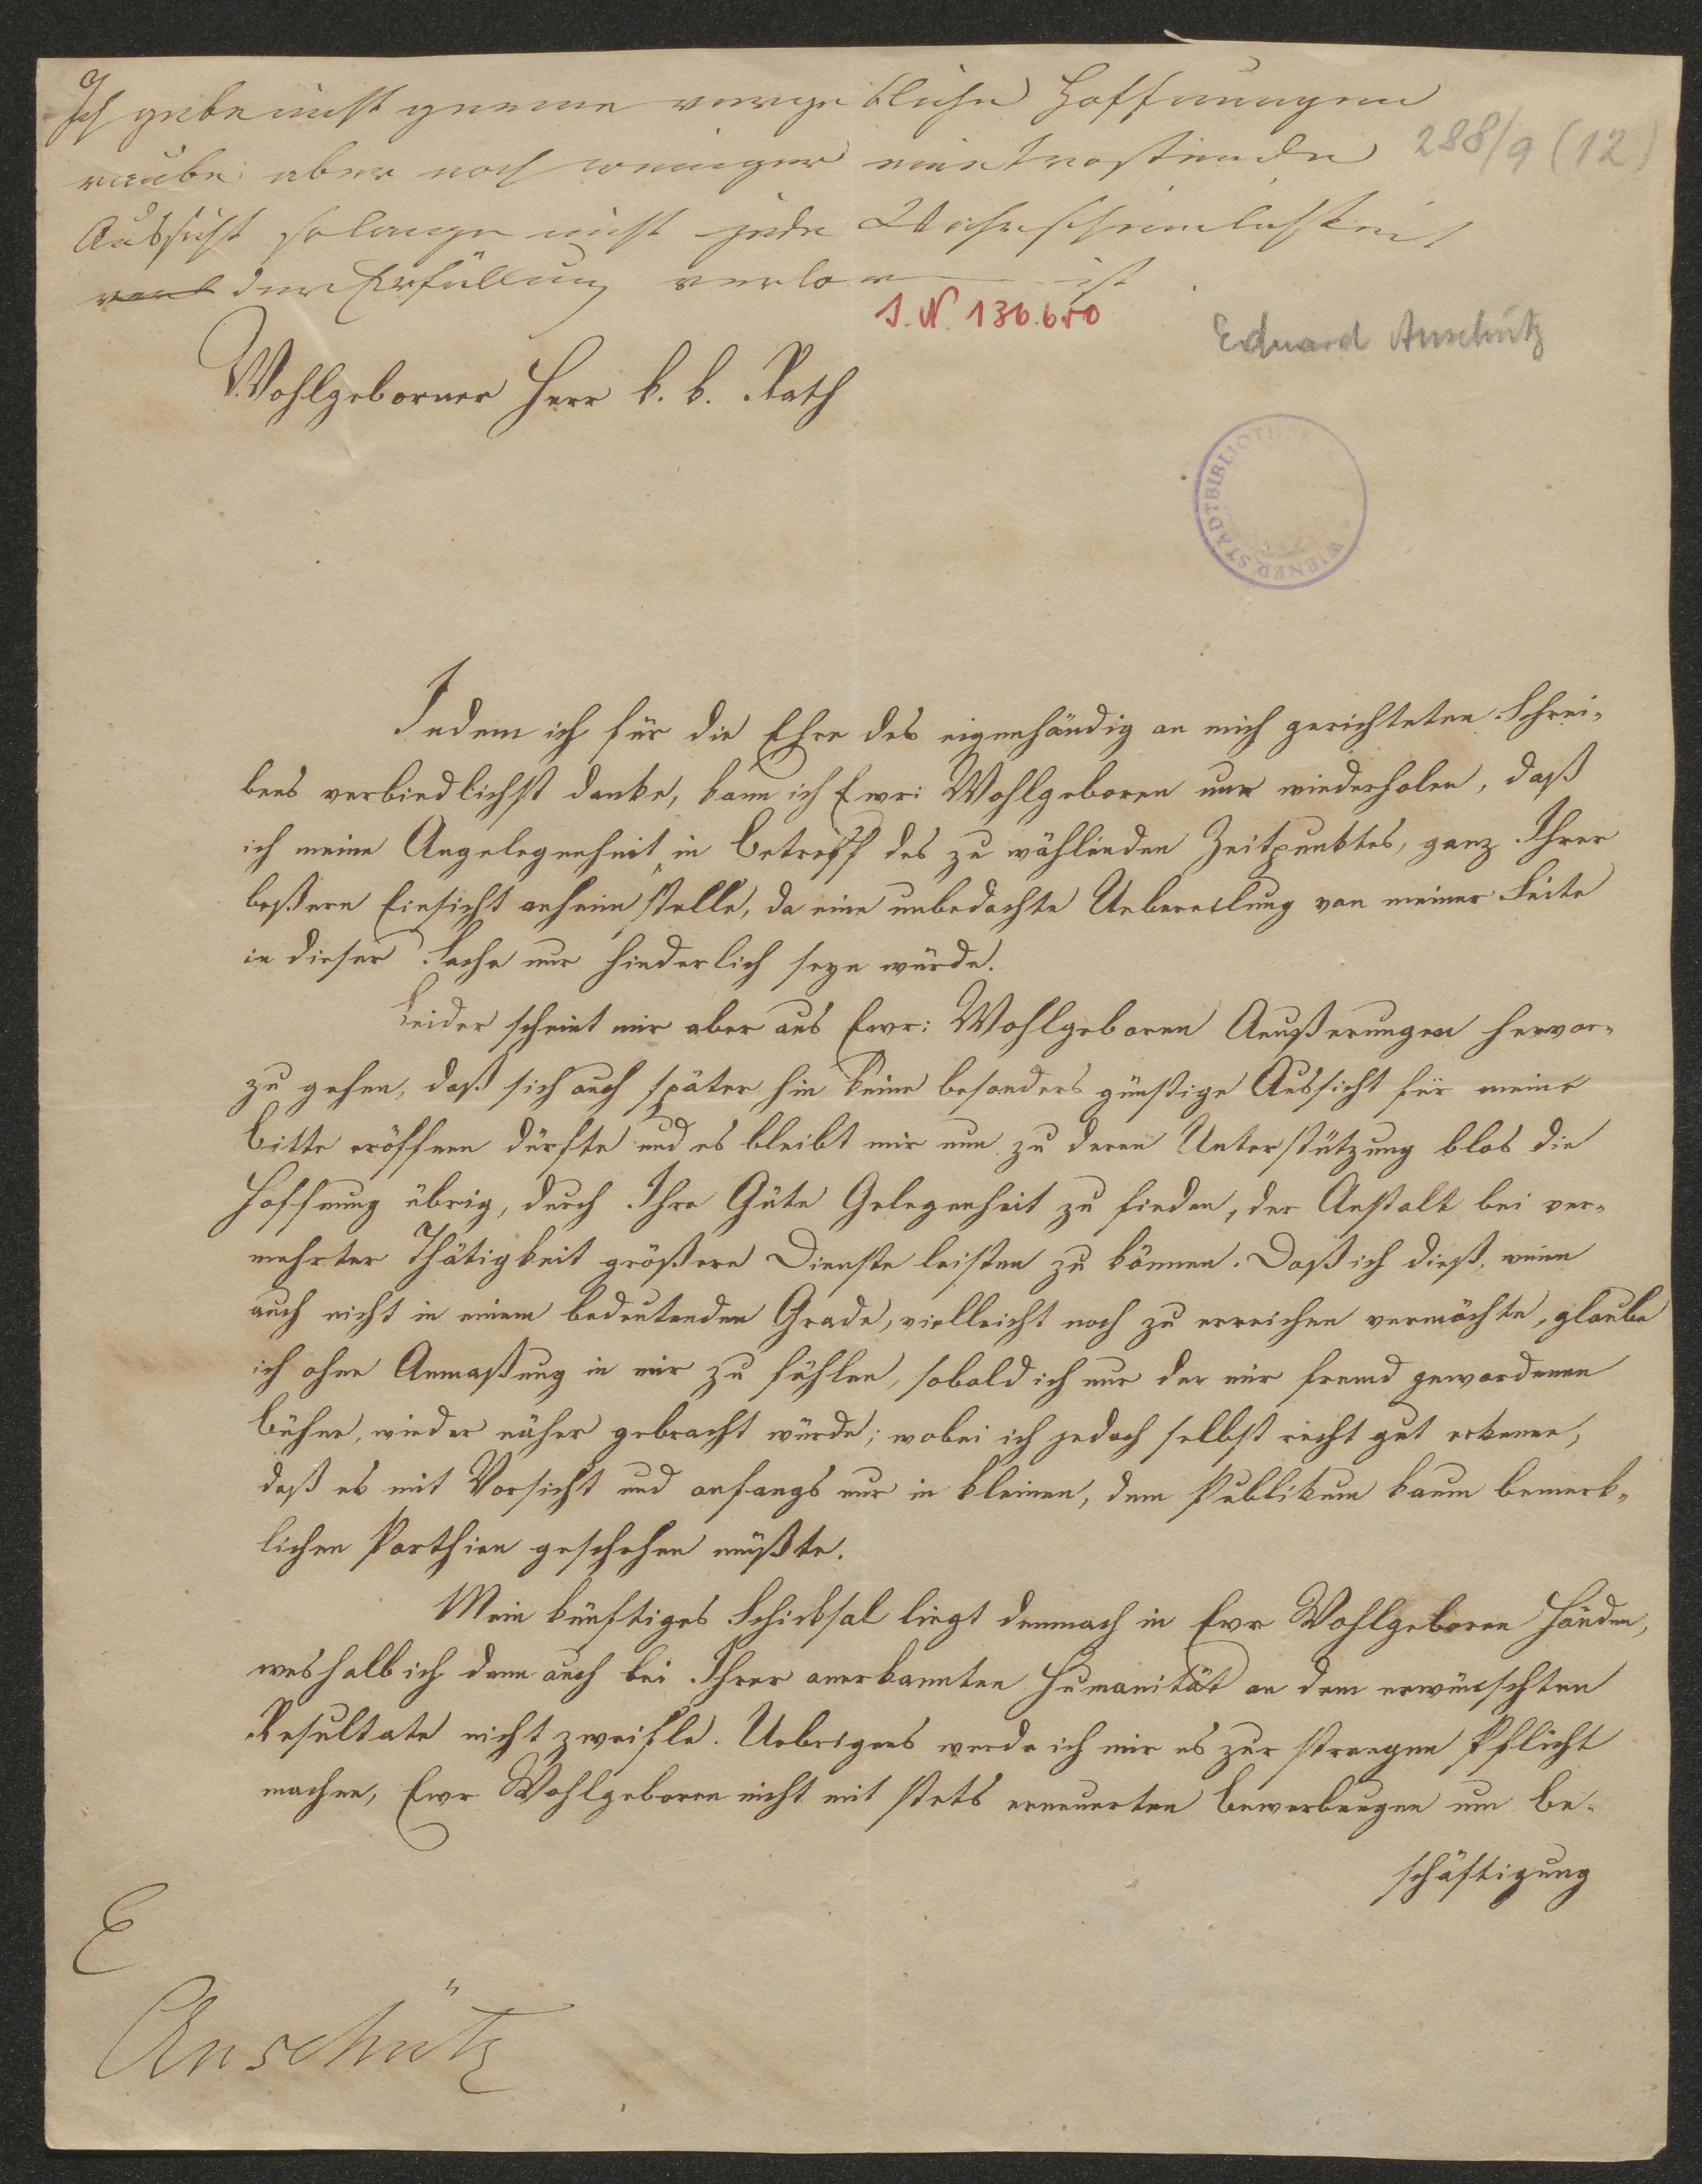 Ich gebe nicht gerne vergebliche Hoffnungen
raube aber noch weniger eine trostende
Aussicht solange nicht jede Wahrscheinlichkeit
der Erfüllung verloren ist
288/9 (12)
I. N. 136.650
Eduard Anschütz
Wohlgeborner Herr k. k. Rath
WIENER STADTBIBLIOTHEK
Indem ich für die Ehre des eigenhändig an mich gerichteten Schrei-
bens verbindlichst danke, kann ich Ewr: Wohlgeboren nur wiederholen, daß
ich meine Angelegenheit, in Betreff des zu wählenden Zeitpunktes, ganz Ihrer
beßeren Einsicht anheim stelle, da eine unbedachte Uebereilung von meiner Seite
in dieser Sache nur hinderlich seyn würde.
Leider scheint mir aber aus Ewr: Wohlgeboren Aeußerungen hervor-
zu gehen, daß sich auch später hin keine besonders günstige Aussicht für meine
Bitte eröffnen dürfte und es bleibt mir nun zu deren Unterstützung blos die
Hoffnung übrig, durch Ihre Güte Gelegenheit zu finden, der Anstalt bei ver-
mehrter Thätigkeit größere Dienste leisten zu können. Daß ich dieß, wenn
auch nicht in einem bedeutenden Grade, vielleicht noch zu erreichen vermöchte, glaube
ich ohne Anmaßung in mir zu fühlen, sobald ich nur der mir fremd gewordenen
Bühne, wieder näher gebracht würde; wobei ich jedoch selbst recht gut erkenne,
daß es mit Vorsicht und anfangs nur in kleinen, dem Publikum kaum bemerk-
lichen Parthien geschehen müßte.
Mein künftiges Schicksal liegt demnach in Ewr Wohlgeboren Händen,
weshalb ich denn auch bei Ihrer anerkannten Humanität an dem erwünschten
Resultate nicht zweifle. Uebrigens werde ich mir es zur strengen Pflicht
machen, Ewr Wohlgeboren nicht mit stets erneuerten Bewerbungen um Be-
schäftigung
E
Anschütz